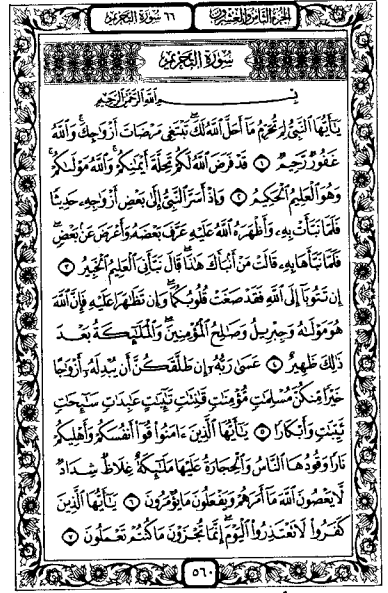 الجزء الثامن والعشرون ٦٦ سورة التحريم
سورة التحريم
بسم الله الرحمن الرحيم
يَٰٓأَيُّهَا ٱلنَّبِيُّ لِمَ تُحَرِّمُ مَآ أَحَلَّ ٱللَّهُ لَكَۖ تَبۡتَغِي مَرۡضَاتَ أَزۡوَٰجِكَۚ وَٱللَّهُ
غَفُورٞ رَّحِيمٞ ١ قَدۡ فَرَضَ ٱللَّهُ لَكُمۡ تَحِلَّةَ أَيۡمَٰنِكُمۡۚ وَٱللَّهُ مَوۡلَىٰكُمۡۖ
وَهُوَ ٱلۡعَلِيمُ ٱلۡحَكِيمُ ٢ وَإِذۡ أَسَرَّ ٱلنَّبِيُّ إِلَىٰ بَعۡضِ أَزۡوَٰجِهِۦ حَدِيثٗا
فَلَمَّا نَبَّأَتۡ بِهِۦ وَأَظۡهَرَهُ ٱللَّهُ عَلَيۡهِ عَرَّفَ بَعۡضَهُۥ وَأَعۡرَضَ عَنۢ بَعۡضٖۖ
فَلَمَّا نَبَّأَهَا بِهِۦ قَالَتۡ مَنۡ أَنۢبَأَكَ هَٰذَاۖ قَالَ نَبَّأَنِيَ ٱلۡعَلِيمُ ٱلۡخَبِيرُ ٣
إِن تَتُوبَآ إِلَى ٱللَّهِ فَقَدۡ صَغَتۡ قُلُوبُكُمَاۖ وَإِن تَظَٰهَرَا عَلَيۡهِ فَإِنَّ ٱللَّهَ
هُوَ مَوۡلَىٰهُ وَجِبۡرِيلُ وَصَٰلِحُ ٱلۡمُؤۡمِنِينَۖ وَٱلۡمَلَٰٓئِكَةُ بَعۡدَ
ذَٰلِكَ ظَهِيرٌ ٤ عَسَىٰ رَبُّهُۥٓ إِن طَلَّقَكُنَّ أَن يُبۡدِلَهُۥٓ أَزۡوَٰجًا
خَيۡرٗا مِّنكُنَّ مُسۡلِمَٰتٖ مُّؤۡمِنَٰتٖ قَٰنِتَٰتٖ تَٰٓئِبَٰتٍ عَٰبِدَٰتٖ سَٰٓئِحَٰتٖ
ثَيِّبَٰتٖ وَأَبۡكَارٗا ٥ يَٰٓأَيُّهَا ٱلَّذِينَ ءَامَنُواْ قُوٓاْ أَنفُسَكُمۡ وَأَهۡلِيكُمۡ
نَارٗا وَقُودُهَا ٱلنَّاسُ وَٱلۡحِجَارَةُ عَلَيۡهَا مَلَٰٓئِكَةٌ غِلَاظٞ شِدَادٞ
لَّا يَعۡصُونَ ٱللَّهَ مَآ أَمَرَهُمۡ وَيَفۡعَلُونَ مَا يُؤۡمَرُونَ ٦ يَٰٓأَيُّهَا ٱلَّذِينَ
كَفَرُواْ لَا تَعۡتَذِرُواْ ٱلۡيَوۡمَۖ إِنَّمَا تُجۡزَوۡنَ مَا كُنتُمۡ تَعۡمَلُونَ ٧
٥٦٠